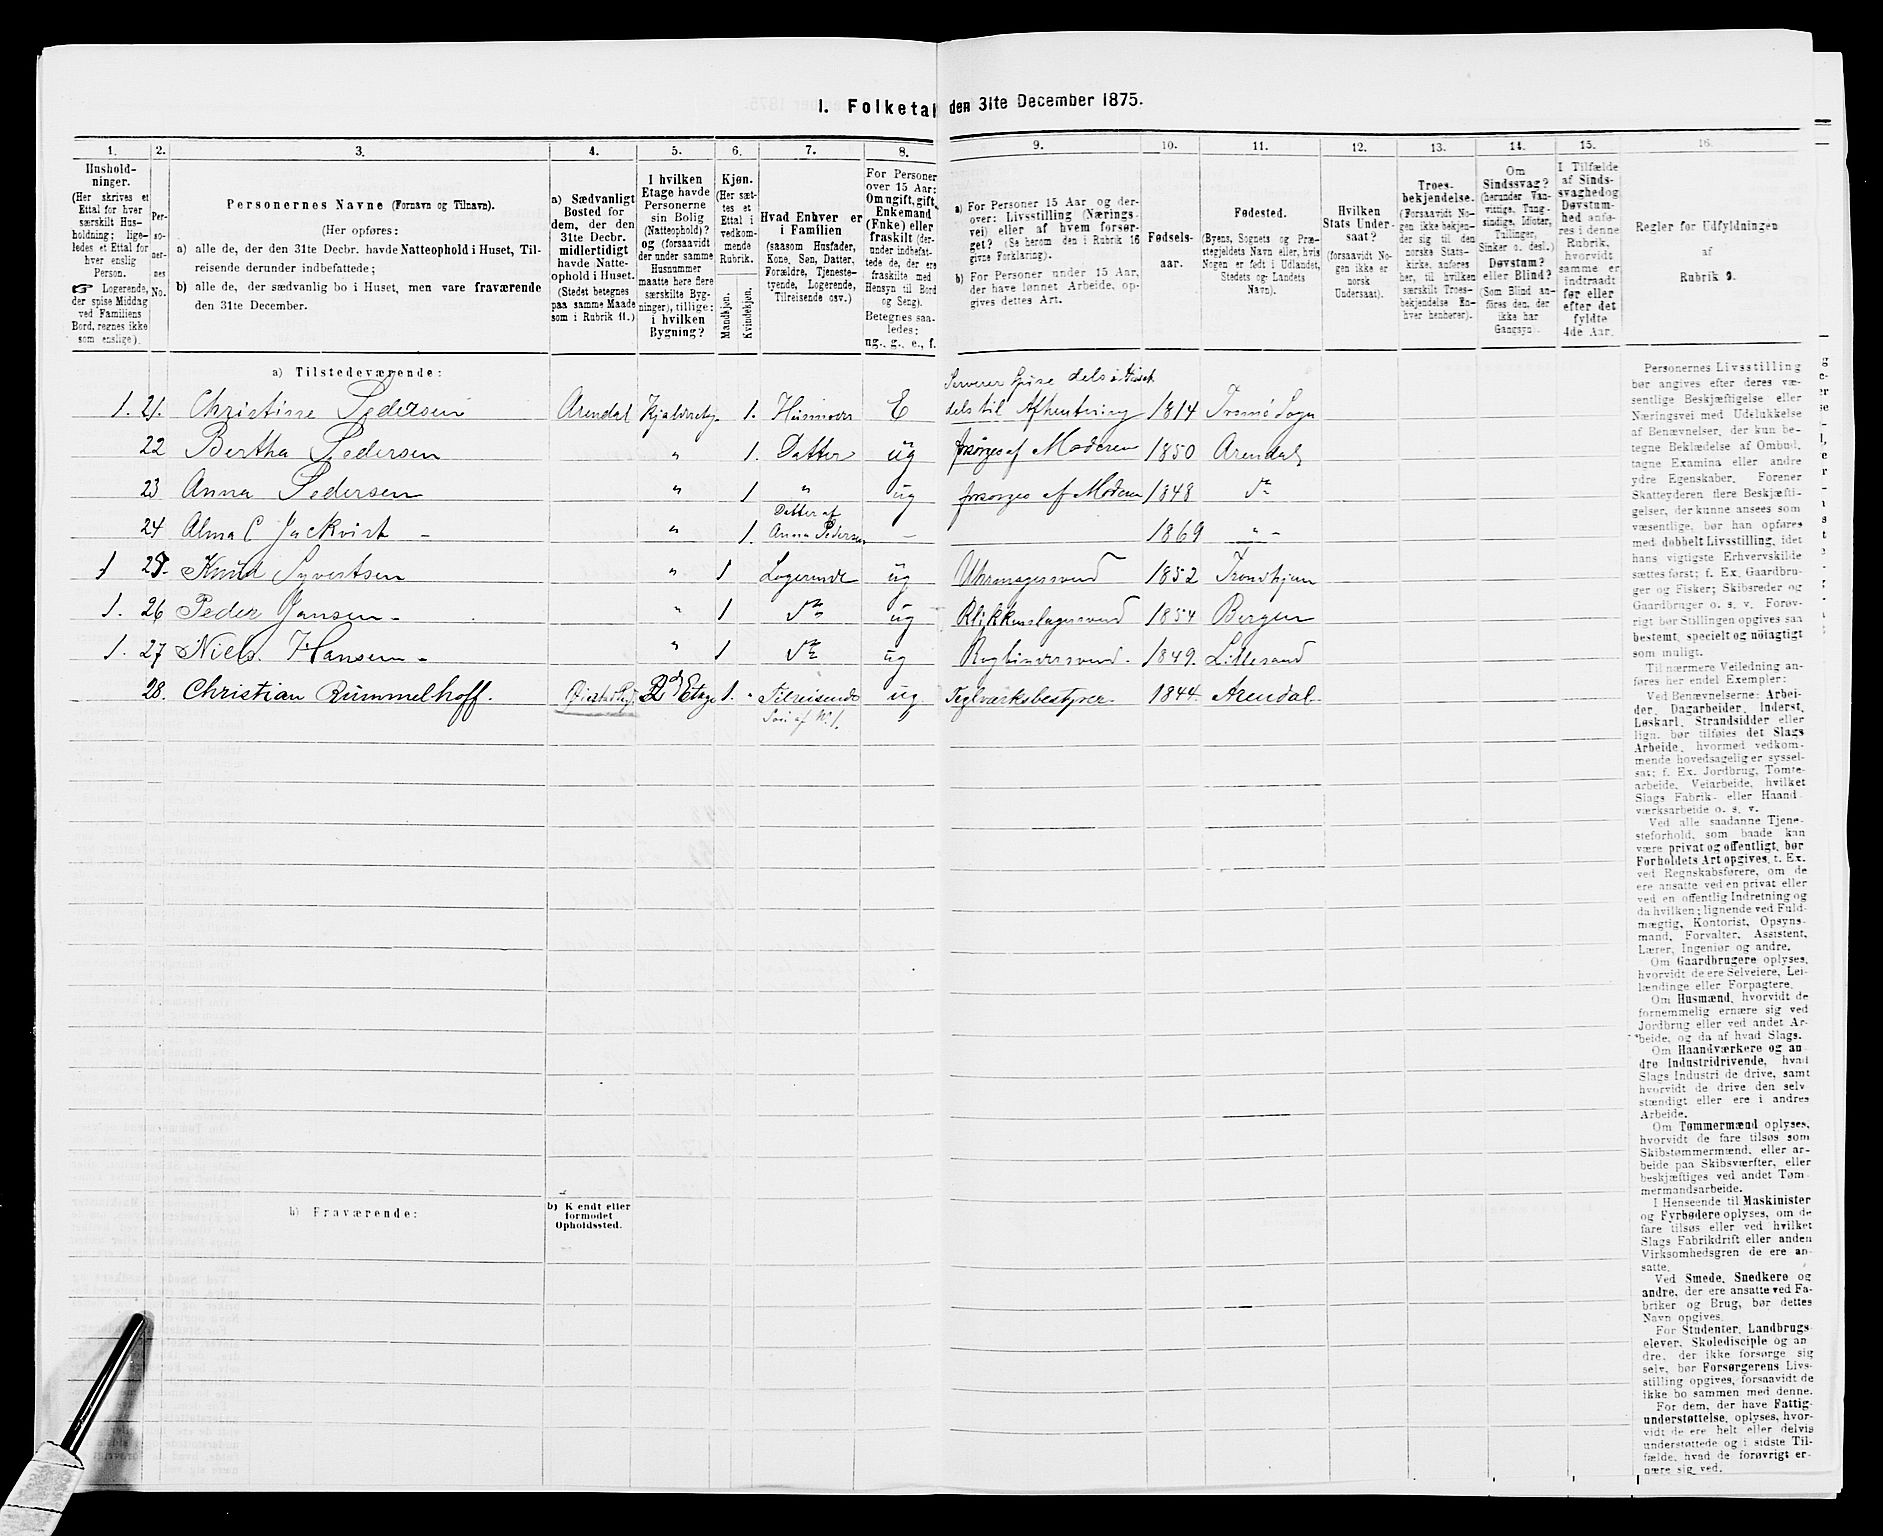 I. Folketal den 31te December 1875.
1.
Hushold-
ninger.
(Her skrives et
Ettal for hver
særskilt Hus-
holdning; lige-
ledes et Ettal for
hver enslig
Person.
☞ Logerende,
der spise Middag
ved Familiens
Bord, regnes ikke
som enslige).
2.
Per-
so-
ner-
nes
No.
3.
Personernes Navne (Fornavn og Tilnavn).
(Her opføres:
a) alle de, der den 31te Decbr. havde Natteophold i Huset, Til-
reisende derunder indbefattede;
b) alle de, der sædvanlig bo i Huset, men vare fraværende
den 31te December.
4.
a) Sædvanligt
Bosted for
dem, der den
31te Decbr.
midlertidigt
havde Natte-
ophold i Huset.
(Stedet betegnes
paa samme Maade
som i Rubrik 11.)
5.
I hvilken
Etage havde
Personerne
sin Bolig
(Natteophold)?
og (forsaavidt
der under samme
Husnummer
maatte høre flere
særskilte Byg-
ninger), tillige:
i hvilken
Bygning?
6.
Kjøn.
(Her sæt-
tes et
Ettal i
vedkom-
mende
Rubrik.
Mandkjøn.
Kvindekjøn.
7.
Hvad Enhver er
i Familien
(saasom Husfader,
Kone, Søn, Datter,
Forældre, Tjeneste-
tyende, Logerende,
Tilreisende osv.)
8.
For Personer
over 15 Aar:
Om ugift, gift,
Enkemand
(Enke) eller
fraskilt (der-
under indbefat-
tede de, der ere
fraskilte med
Hensyn til Bord
og Seng).
Betegnes saa-
ledes:
ug., g., e., f.
9.
a) For Personer 15 Aar og der-
over: Livsstilling (Nærings-
vei) eller af hvem forsør-
get? (Se herom den i Rubrik 16
givne Forklaring).
b) For Personer under 15 Aar,
der have lønnet Arbeide, op-
gives dettes Art.
10.
Fødsels-
aar.
11.
Fødested.
(Byens, Sognets og Præ-
stegjeldets Navn eller, hvis
Nogen er født i Udlandet,
Stedets og Landets
Navn).
12.
Hvilken
Stats Under-
saat?
(forsaavidt No-
gen ikke er
norsk
Undersaat).
13.
Troes-
bekjendelse.
(Forsaavidt No-
gen ikke bekjen-
der sig til den
norske Stats-
kirke, anføres
her, til hvilken
særskilt Troes-
bekjendelse En-
hver henhører).
14.
Om
Sindssvag?
(herunder Van-
vittige, Tung-
sindige, Idioter,
Tullinger,
Sinker o. desl.)
Døvstum?
eller Blind?
(Som Blind an-
føres den, der
ikke har
Gangsyn).
15.
I Tilfælde
af Sinds-
svaghed og
Døvstum-
hed anfø-
res i denne
Rubrik,
hvorvidt
samme er
indtraadt
før eller
efter det
fyldte
4de Aar.
16.
Regler for Udfyldningen
af
Rubrik 9.
a) Tilstedeværende:
Serverer Spise dels i Huset
1. 21. Christine Pedersen Arendal 1. Husmoer E dels til Afhentning 1814 Tromø Sogn
22 Bertha Pedersen " 1. Datter ug forsørges af Moderen 1850 Arendal
23 Anna Pedersen " 1 " ug forsørges af Moderen 1848 do
Datter af
24 Alma C Jackvist - " 1. Anna Pedersen - 1869 " -
1 25. Knud Syvertsen " 1 Logerende ug Uhrmagersvend 1852 Trondhjem
1. 26 Peder Jansen - " 1 do ug Blikkenslagersvend 1854 Bergen
1. 27 Niels Hansen - " 1 do ug Bogbindersvend 1849. Lillesand
28. Christian Rummelhoff. 2d Etage 1. " Tilreisende ug Teglværksbestyrer 1844. Arendal.
Søn af No 1.
b) Fraværende:
b) Kjendt eller
formodet
Opholdssted.
Personernes Livsstilling
bør angives efter deres væ-
sentlige Beskjæftigelse eller
Næringsvei med Udelukkelse
af Benævnelser, der kun be-
tegne Beklædelse af Ombud,
tagne Examina eller andre
ydre Egenskaber. Forener
Skatteyderen flere Beskjæfti-
gelser, der kunne ansees som
væsentlige, bør han opføres
med dobbelt Livsstilling, idet
hans vigtigste Erhvervskilde
sættes først; f. Ex. Gaardbru-
ger og Fisker; Skibsreder og
Gaardbruger o. s. v. Forøv-
rigt bør Stillingen opgives saa
bestemt, specielt og nøiagtigt
som muligt.
Til nærmere Veiledning an-
føres her endel Exempler:
Ved Benævnelserne: Arbei-
der, Dagarbeider, Inderst,
Løskarl, Strandsidder eller
lign. bør tilføies det Slags
Arbeide, hvormed vedkom-
mende hovedsagelig er syssel-
sat; f. Ex. Jordbrug, Tomte-
arbeide, Veiarbeide, hvilket
Slags Fabrik- eller Haand-
værksarbeide o. s. v.
Ved alle saadanne Tjene-
steforhold, som baade kan
være privat og offentligt, bør
Forholdets Art opgives, t. Ex.
ved Regnskabsførere, om de
ere ansatte ved en privat eller
ved en offentlig Indretning og
da hvilken; lignende ved Fuld-
mægtig, Kontorist, Opsyns-
mand, Forvalter, Assistent,
Lærer, Ingeniør og andre.
Om Gaardbrugere oplyses,
hvorvidt de ere Selveiere, Lei-
lændinge eller Forpagtere.
Om Husmænd, hvorvidt de
fornemmelig ernære sig ved
Jordbrug eller ved andet Ar-
beide, og da af hvad Slags.
Om Haandværkere og an-
dre Industridrivende, hvad
Slags Industri de drive, samt
hvorvidt de drive den selv-
stændigt eller ere i andres
Arbeide.
Om Tømmermænd oplyses,
hvorvidt de fare tilsøs som
Skibstømmermænd, eller ar-
beide paa Skibsværfter, eller
beskjæftiges ved andet Tøm-
mermandsarbeide.
I Henseende til Maskinister
og Fyrbødere oplyses, om de
fare tilsøs eller ved hvilket
Slags Fabrikdrift eller anden
Virksomhedsgren de ere an-
satte.
Ved Smede, Snedkere og
andre, der ere ansatte ved Fa-
briker og Brug, bør dettes
Navn opgives.
For Studenter, Landbrugs-
elever, Skoledisciple og an-
dre, der ikke forsørge sig
selv, bør Forsørgerens Livs-
stilling opgives, forsaavidt de
ikke bo sammen med denne.
For dem, der have Fattig-
understøttelse, oplyses, hvor-
vidt de ere helt eller delvis
understøttede og i sidste Til-
fælde, hvad de forøvrigt er-
nære sig ved.